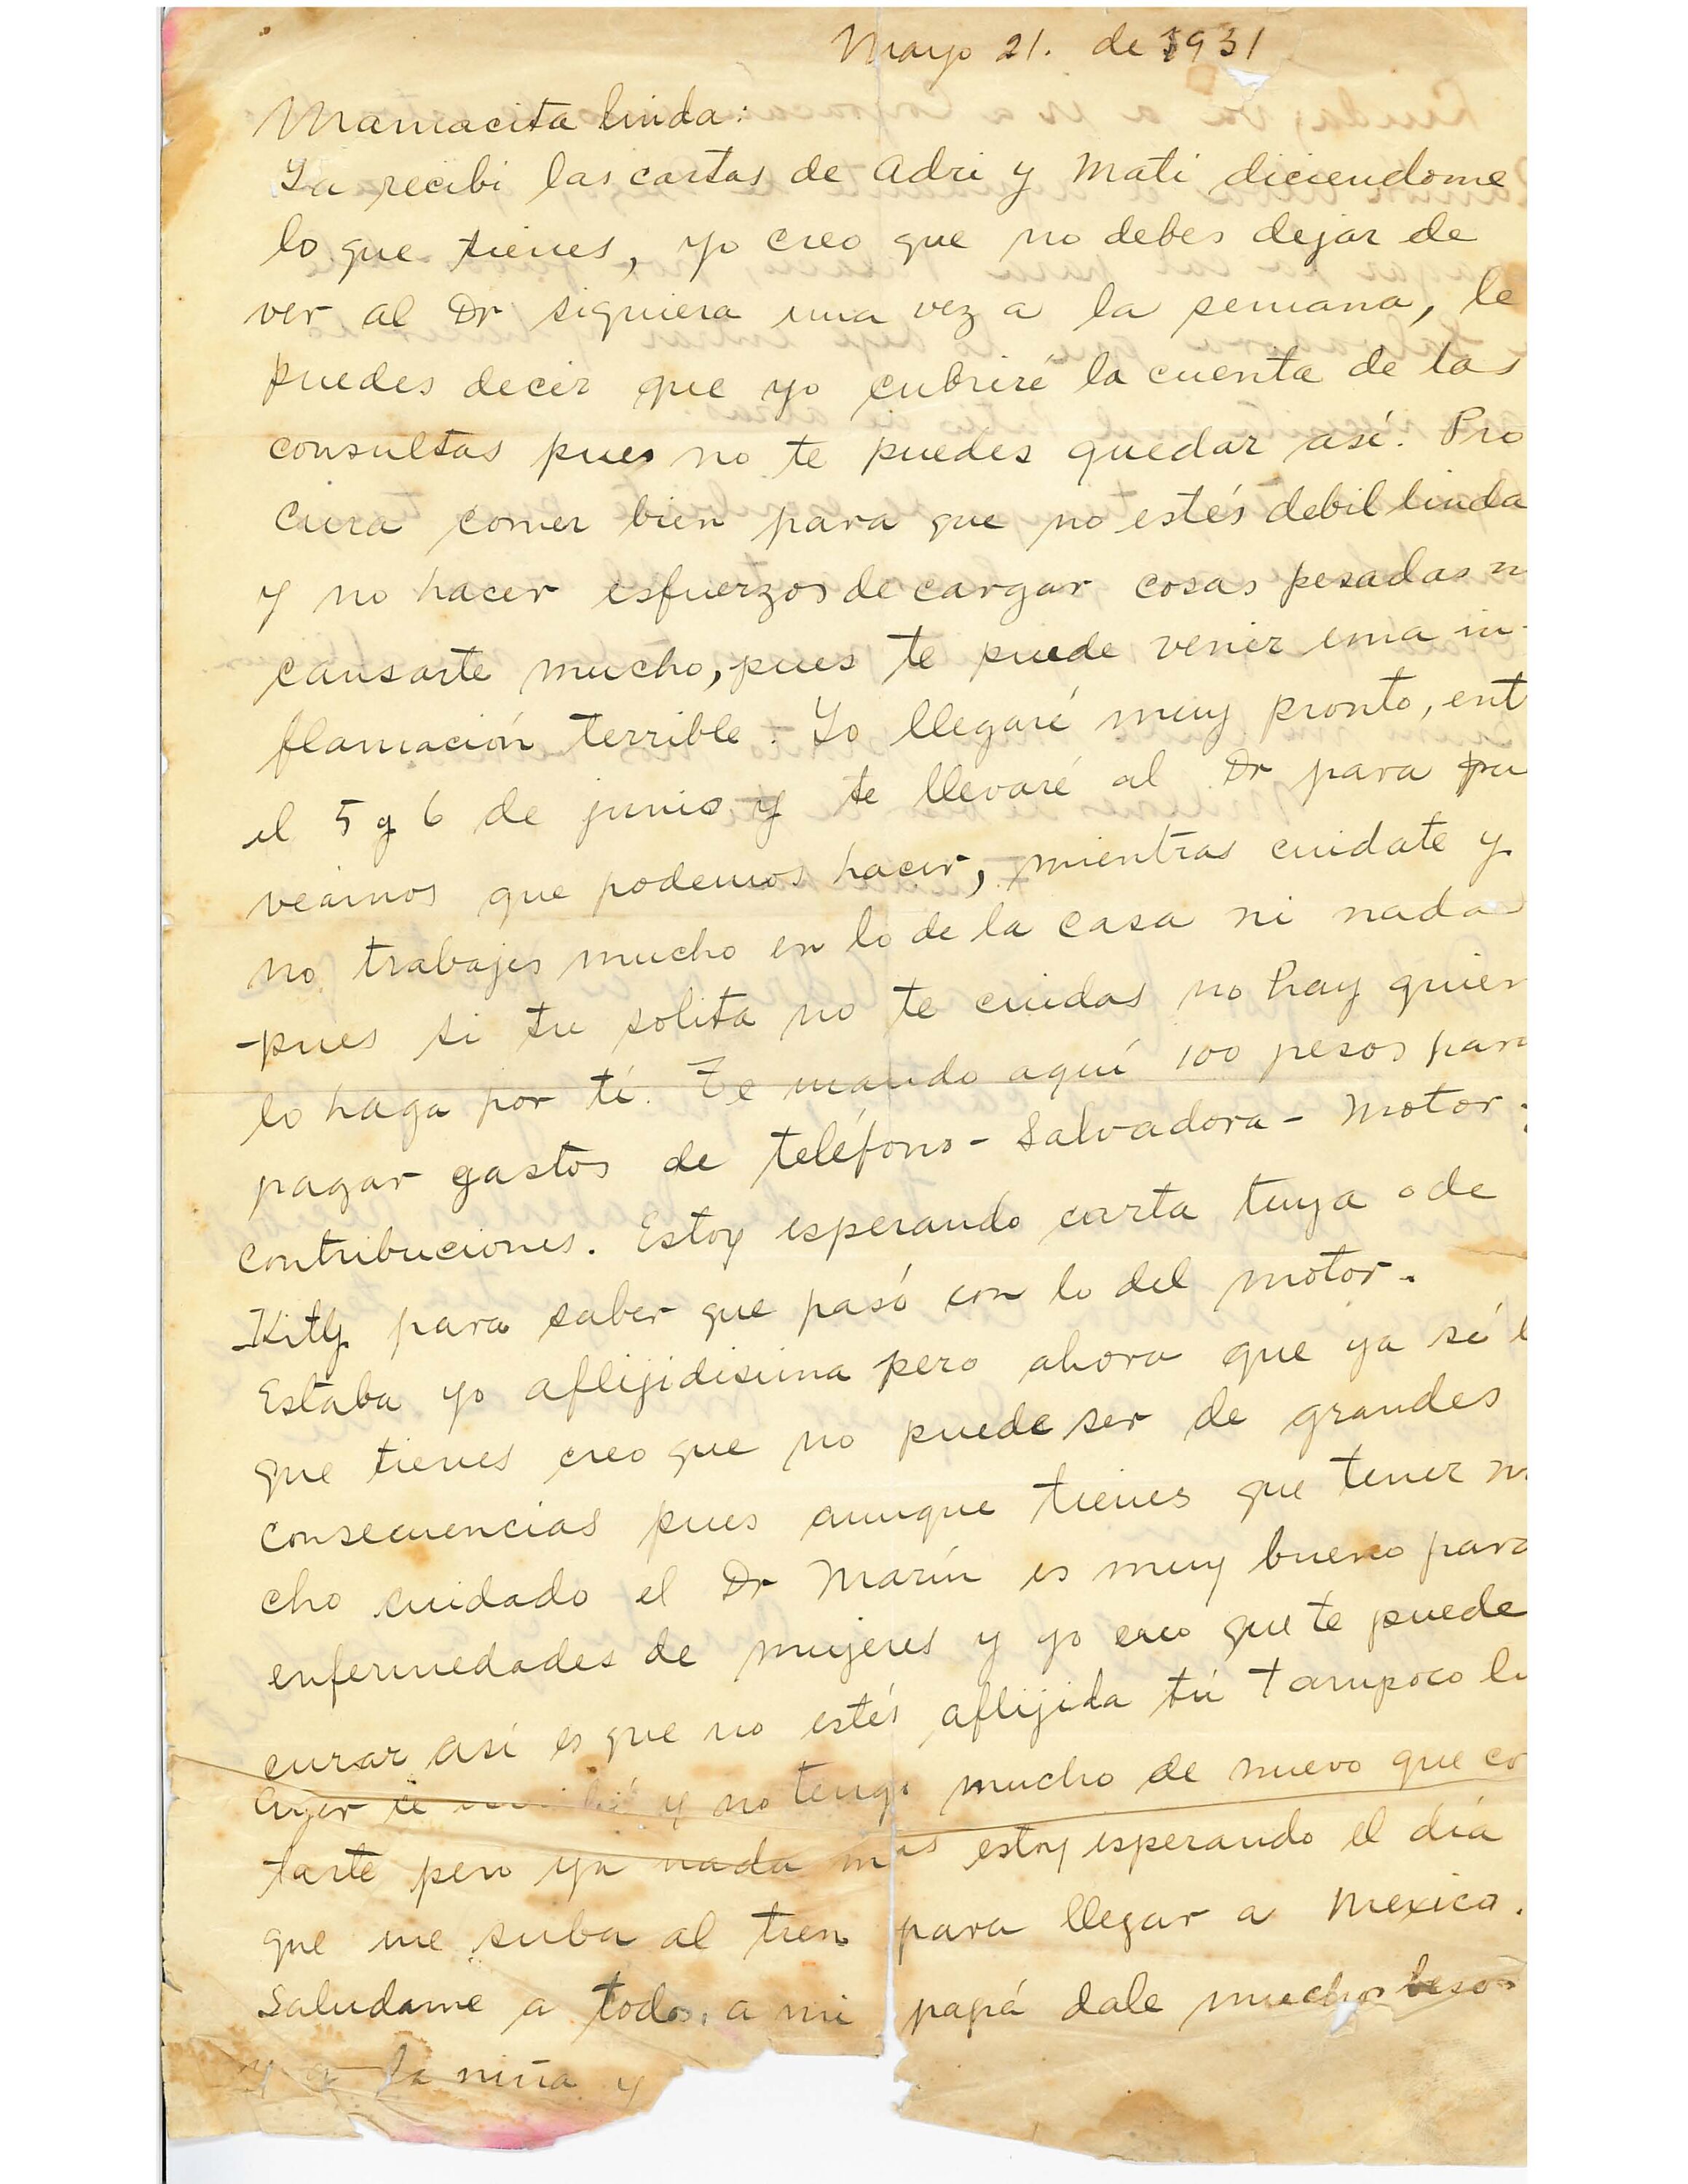 Mayo 21. de 1931
Mamacita linda:
Ya recibi las cartas de Adri y Mati diciendome
lo que tienes, yo creo que no debes dejar de
ver al Dr siquiera una vez a la semana, le
puedes decir que yo cubriré la cuenta de las
consultas pues no te puedes quedar así. Pro
cura comer bien para que no estés debil linda
y no hacer esfuerzos de cargar cosas pesadas n
cansarte mucho, pues te puede venir una in-
flamación terrible. Yo llegaré muy pronto, ent
el 5 y 6 de junio y te llevaré al Dr para
veamos que podemos hacer, mientras cuidate y
no trabajes mucho en lo de la casa ni nada
pues si tu solita no te cuidas no hay quien
lo haga por tí. Te mando aquí 100 pesos para
pagar gastos de teléfono - Salvadora - Motor
contribuciones. Estoy esperando carta tuya o de
Kity para saber que pasó con lo del motor.
Estaba yo aflijidisima pero ahora que ya sé l
que tienes creo que no puede ser de grandes
consecuencias pues aunque tienes que tener m
cho cuidado el Dr Marín es muy bueno para
enfermedades de mujeres y yo creo que te puede
curar así es que no estés aflijida tú tampoco li
Ayer y no tengo mucho de nuevo que co
tarte pero ya nada mas estoy esperando el día
que me suba al tren para llegar a Mexico.
Saludame a todos, a mi papá dale muchos besos
y a la niña y